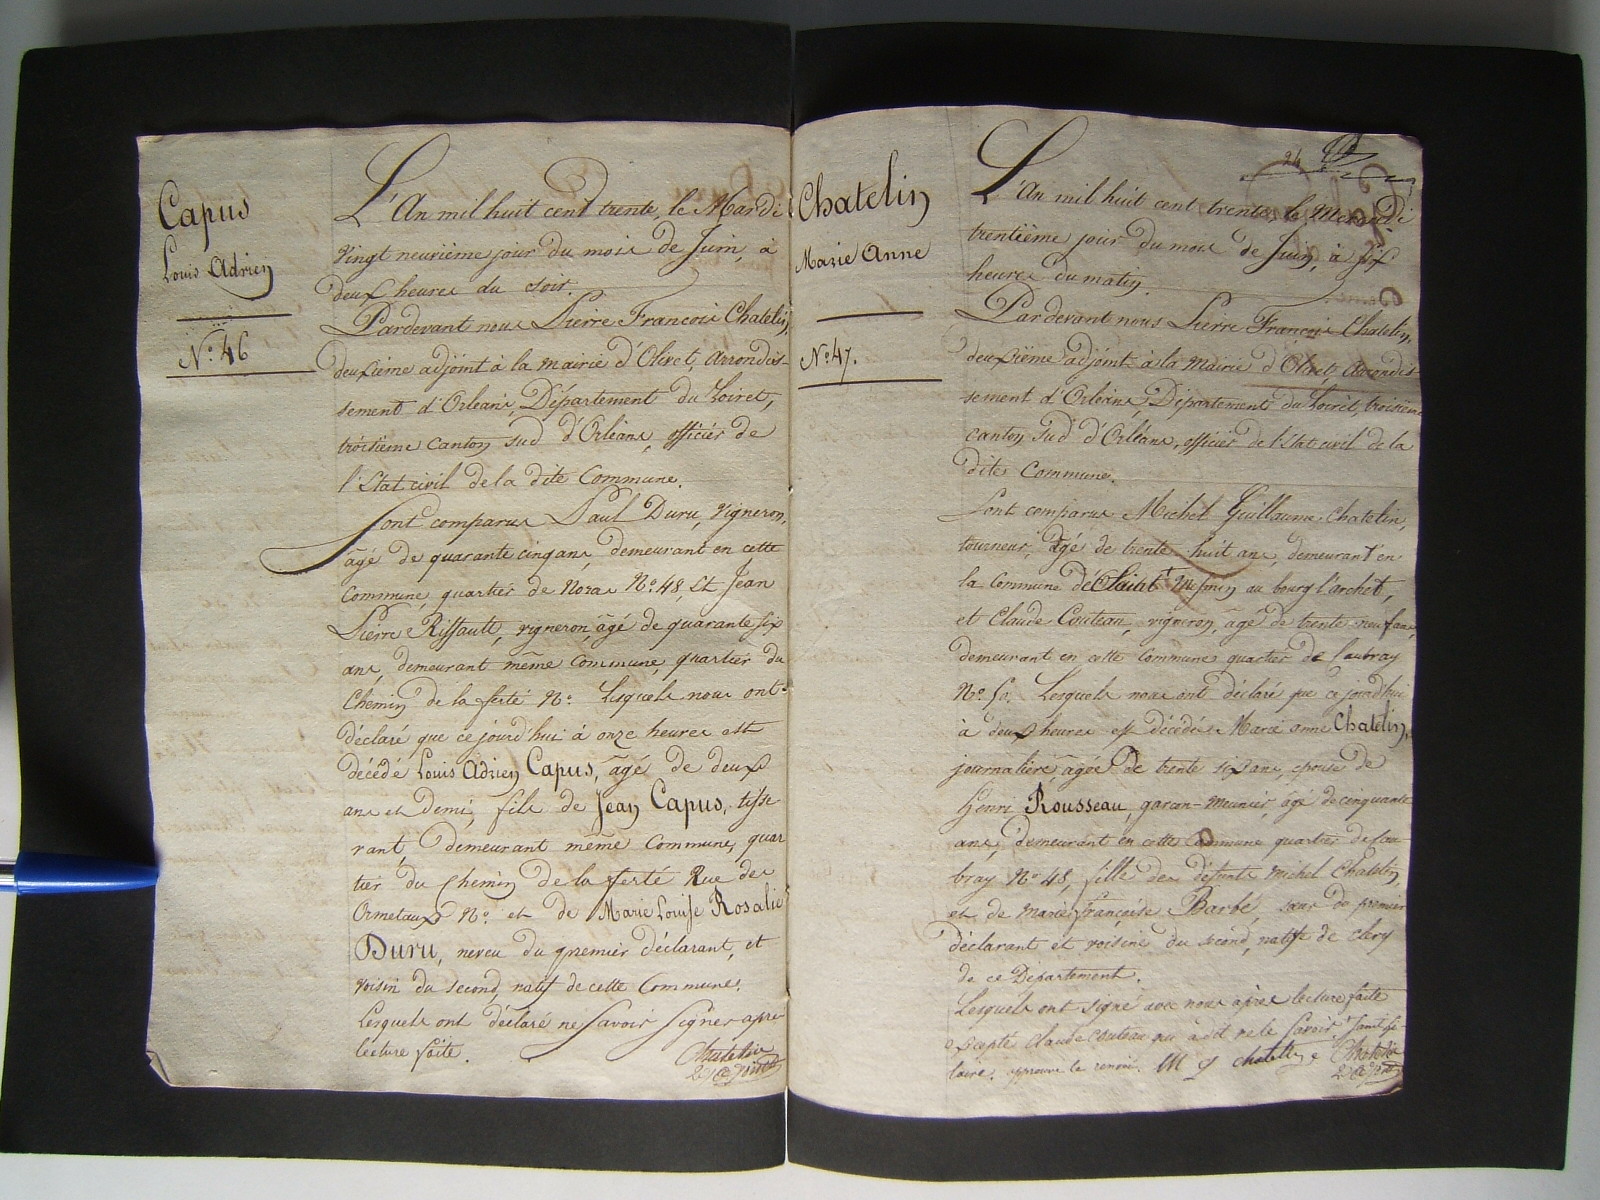 Capus
Louis Adrien
N.o 46
L'An mil huit cent trente, le Mardi
vingt neuvième jour du mois de Juin, à
deux heures du soir.
Pardevant nous Pierre François Chatelin,
deuxième adjoint à la mairie d'Olivet, arrondis-
sement d'Orléans, Département du Loiret,
troisième canton sud d'Orléans, officier de
l'Etat civil de la dite Commune.
Sont comparus Paul Duru, vigneron,
âgé de quarante cinq ans, demeurant en cette
Commune, quartier de Noras N.o 48, Et Jean
Pierre Riffault, vigneron, âgé de quarante six
ans, demeurant même Commune, quartier du
Chemin de la ferté N.o Lesquels nous ont
déclaré que ce jourd'hui à onze heures est
décédé Louis Adrien Capus, âgé de deux
ans et demi, fils de Jean Capus, tisse
rant, demeurant même Commune, quar
tier du Chemin de la ferté Rue des
Ormetaux N.o et de Marie Louise Rosalie
Duru, neveu du premier déclarant, et
voisin du second, natif de cette Commune.
Lesquels ont déclaré ne savoir signer après
lecture faite.
Chatelin
2e adjoint
24
Chatelin
Marie Anne
N.o 47.
L'An mil huit cent trente, le Mercredi
trentième jour du mois de Juin, à six
heures du matin.
Pardevant nous Pierre François Chatelin,
deuxième adjoint à la Mairie d'Olivet, Arrondis-
sement d'Orléans, Département du Loiret, troisième
canton sud d'Orléans, officier de l'Etat civil de la
dite Commune.
Sont comparus Michel Guillaume Chatelin,
tourneur, âgé de trente huit ans, demeurant en
la Commune de Saint Mesmin au bourg l'archet,
et Claude Couteau, vigneron, âgé de trente neuf ans,
demeurant en cette Commune quartier de Caubray
N.o 50. Lesquels nous ont déclaré que ce jourd'hui
à deux heures est décédée Marie anne Chatelin,
journalière, âgée de trente six ans, épouse de
Henri Rousseau, garçon-meunier, âgé de cinquante
ans, demeurant en cette Commune quartier de Cau
bray N.o 48, fille des défunts Michel Chatelin,
et de Marie françoise Barbé, sœur du premier
déclarant et voisine du second, native de Clery
de ce Département.
Lesquels ont signé avec nous après lecture faite
excepté Claude Couteau qui a dit ne le savoir
approuvé le renvoi. M G chatelin Chatelin
2e adjoint